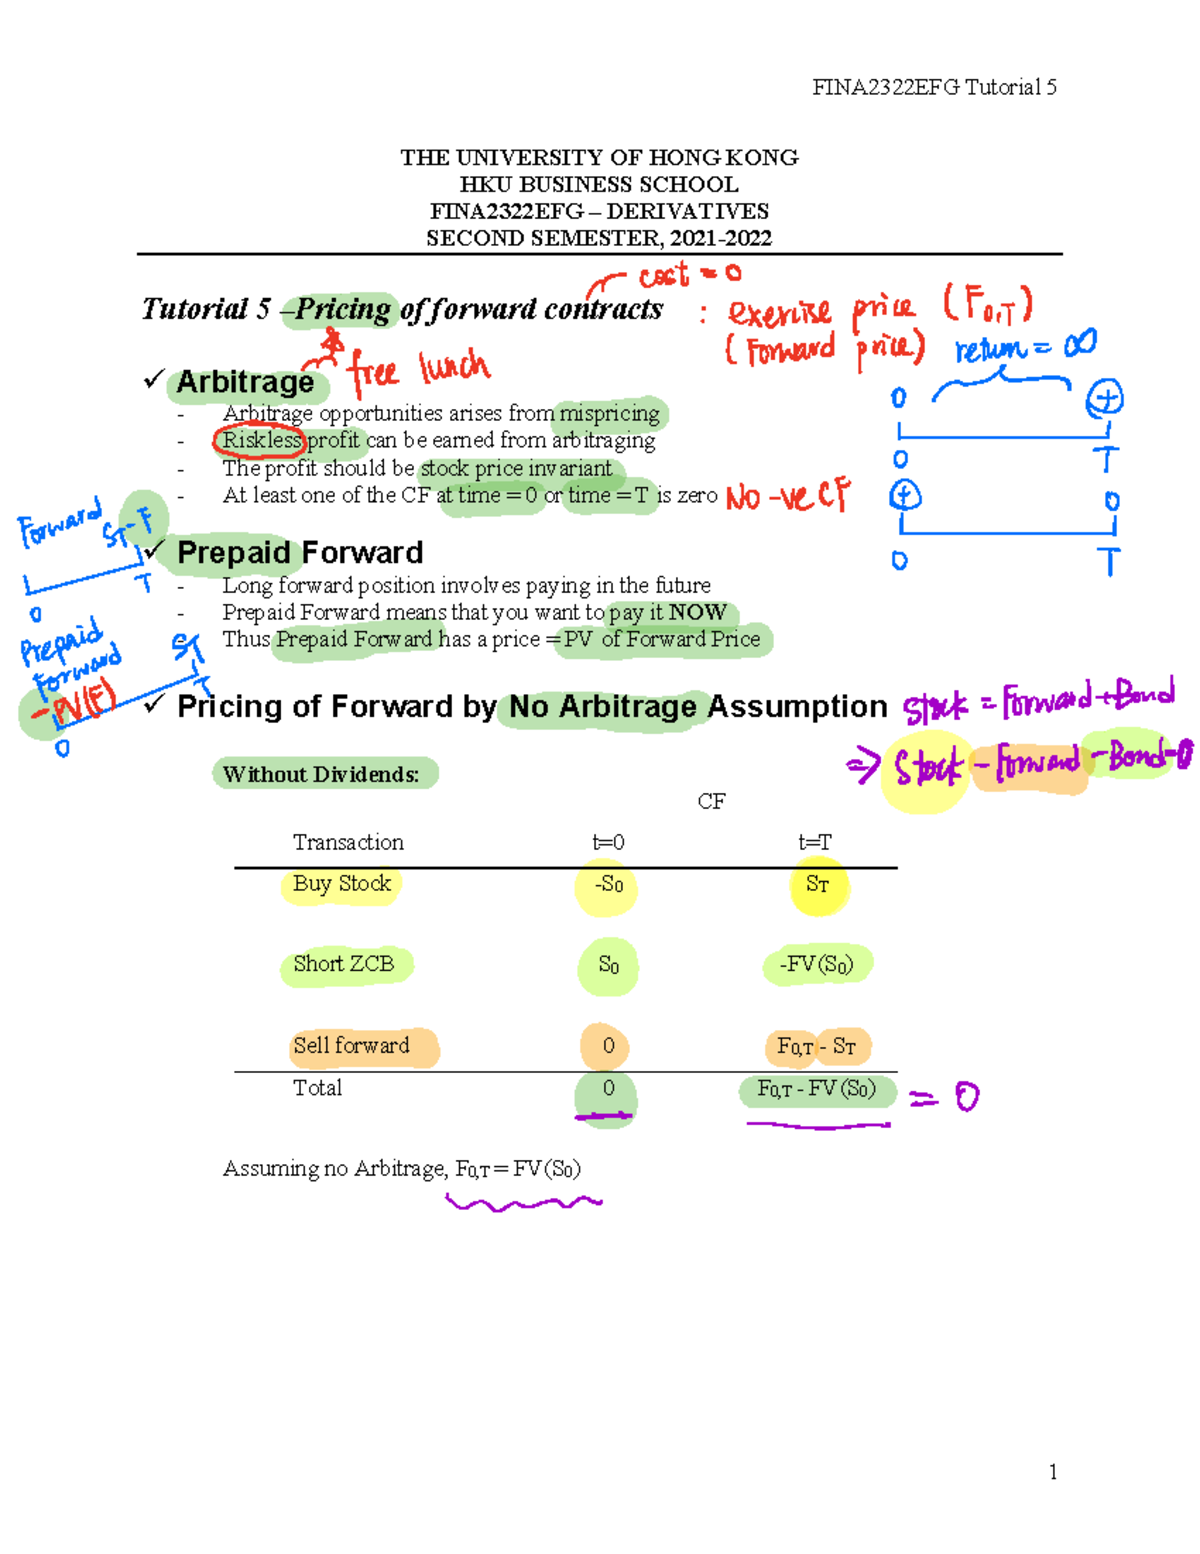 FINA2322EFG Tutorial 5
THE UNIVERSITY OF HONG KONG
HKU BUSINESS SCHOOL
FINA2322EFG – DERIVATIVES
SECOND SEMESTER, 2021-2022
cost = 0
Tutorial 5 –Pricing of forward contracts
: exercise price (F0,T)
(Forward price)
return = ∞
✓ Arbitrage
free lunch
0 +
- Arbitrage opportunities arises from mispricing
- Riskless profit can be earned from arbitraging
0 T
- The profit should be stock price invariant
- At least one of the CF at time = 0 or time = T is zero
No -ve CF
+ 0
0 T
Forward
ST-F
0 T
✓ Prepaid Forward
- Long forward position involves paying in the future
- Prepaid Forward means that you want to pay it NOW
- Thus Prepaid Forward has a price = PV of Forward Price
Prepaid
Forward
ST
-PV(F)
0 T
✓ Pricing of Forward by No Arbitrage Assumption
Stock = Forward + Bond
⇒ Stock - Forward - Bond = 0
Without Dividends:
CF
Transaction t=0 t=T
Buy Stock -S0 ST
Short ZCB S0 -FV(S0)
Sell forward 0 F0,T - ST
Total 0 F0,T - FV(S0) = 0
Assuming no Arbitrage, F0,T = FV(S0)
1